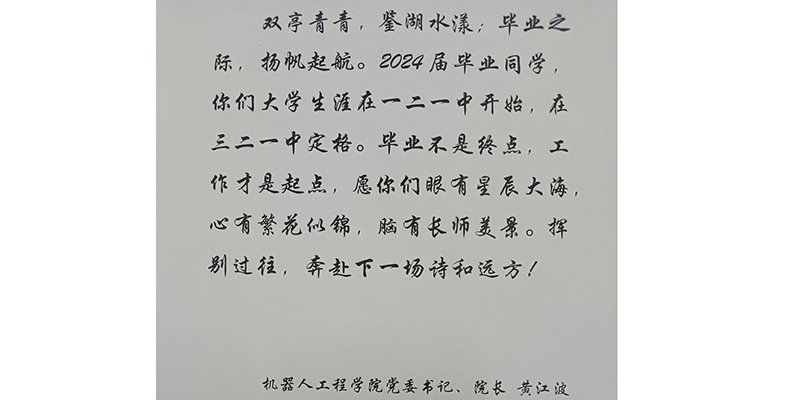 双亭青青，鉴湖水漾；毕业之
际，扬帆起航。2024届毕业同学，
你们大学生涯在一二一中开始，在
三二一中定格。毕业不是终点，工
作才是起点，愿你们眼有星辰大海，
心有繁花似锦，脑有长师美景。挥
别过往，奔赴下一场诗和远方！
机器人工程学院党委书记、院长 黄江波